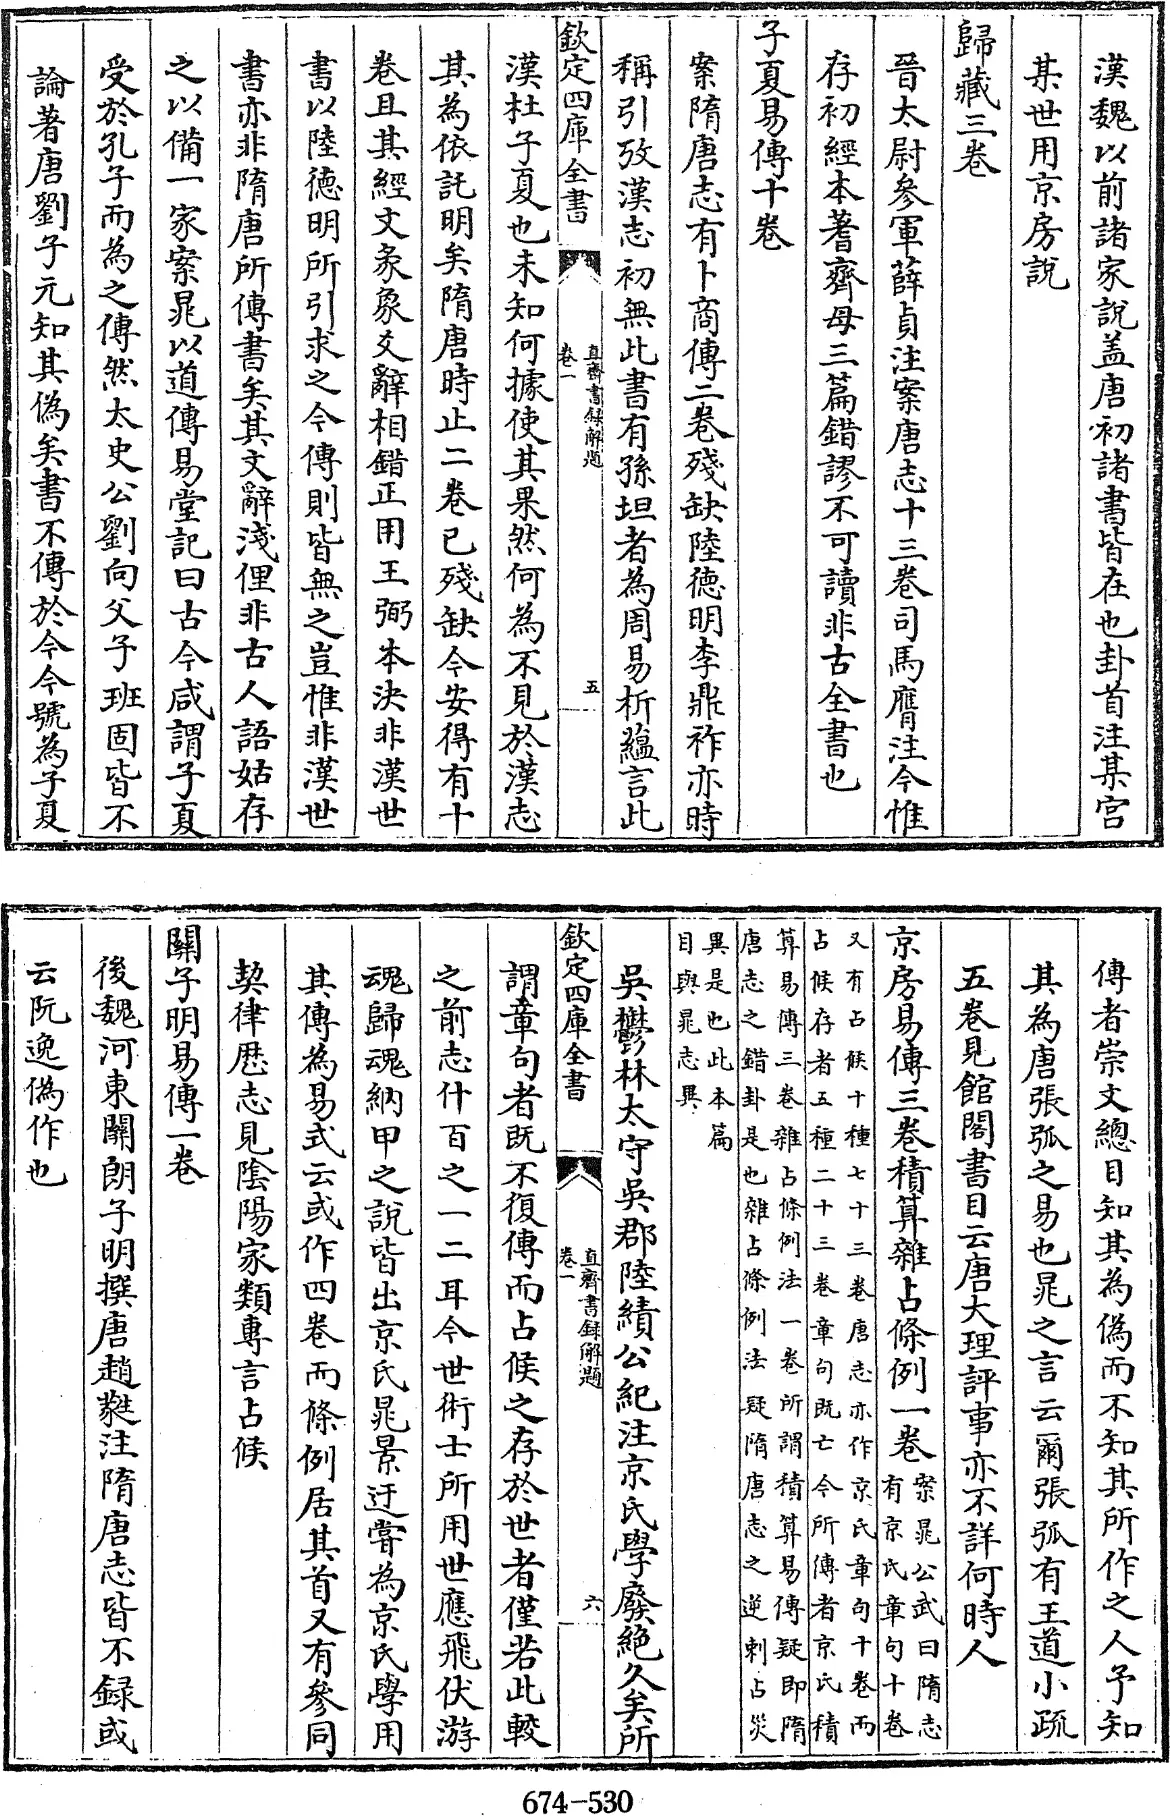 漢魏以前諸家説盖唐初諸書皆在也卦首注某宫
某世用京房説
歸藏三卷
晉太尉參軍薛貞注案唐志十三卷司馬膺注今惟
存初經本蓍齊母三篇錯謬不可讀非古全書也
子夏易傳十卷
案隋唐志有卜商傳二卷殘缺陸德明李鼎祚亦時
稱引攷漢志初無此書有孫坦者為周易析藴言此
欽定四庫全書
直齋書録解題
卷一
五
漢杜子夏也未知何據使其果然何為不見於漢志
其為依託明矣隋唐時止二卷已殘缺今安得有十
卷且其經文彖象爻辭相錯正用王弼本決非漢世
書以陸德明所引求之今傳則皆無之豈惟非漢世
書亦非隋唐所傳書矣其文辭淺俚非古人語姑存
之以備一家案晁以道傳易堂記曰古今咸謂子夏
受於孔子而為之傳然太史公劉向父子班固皆不
論著唐劉子元知其偽矣書不傳於今今號為子夏
傳者崇文總目知其為偽而不知其所作之人予知
其為唐張弧之易也晁之言云爾張弧有王道小疏
五卷見館閣書目云唐大理評事亦不詳何時人
京房易傳三卷積算雜占條例一卷
案晁公武曰隋志
有京氏章句十卷
又有占候十種七十三卷唐志亦作京氏章句十卷而
占候存者五種二十三卷章句既亡今所傳者京氏積
算易傳三卷雜占條例法一卷所謂積算易傳疑即隋
唐志之錯卦是也雜占條例法疑隋唐志之逆刺占災
異是也此本篇
目與晁志異
吳鬱林太守吳郡陸績公紀注京氏學廢絶久矣所
欽定四庫全書
直齋書録解題
卷一
六
謂章句者既不復傳而占候之存於世者僅若此較
之前志什百之一二耳今世術士所用世應飛伏游
魂歸魂納甲之説皆出京氏晁景迂嘗為京氏學用
其傳為易式云或作四卷而條例居其首又有參同
契律歴志見陰陽家類專言占候
關子明易傳一卷
後魏河東關朗子明撰唐趙蕤注隋唐志皆不録或
云阮逸偽作也
674-530